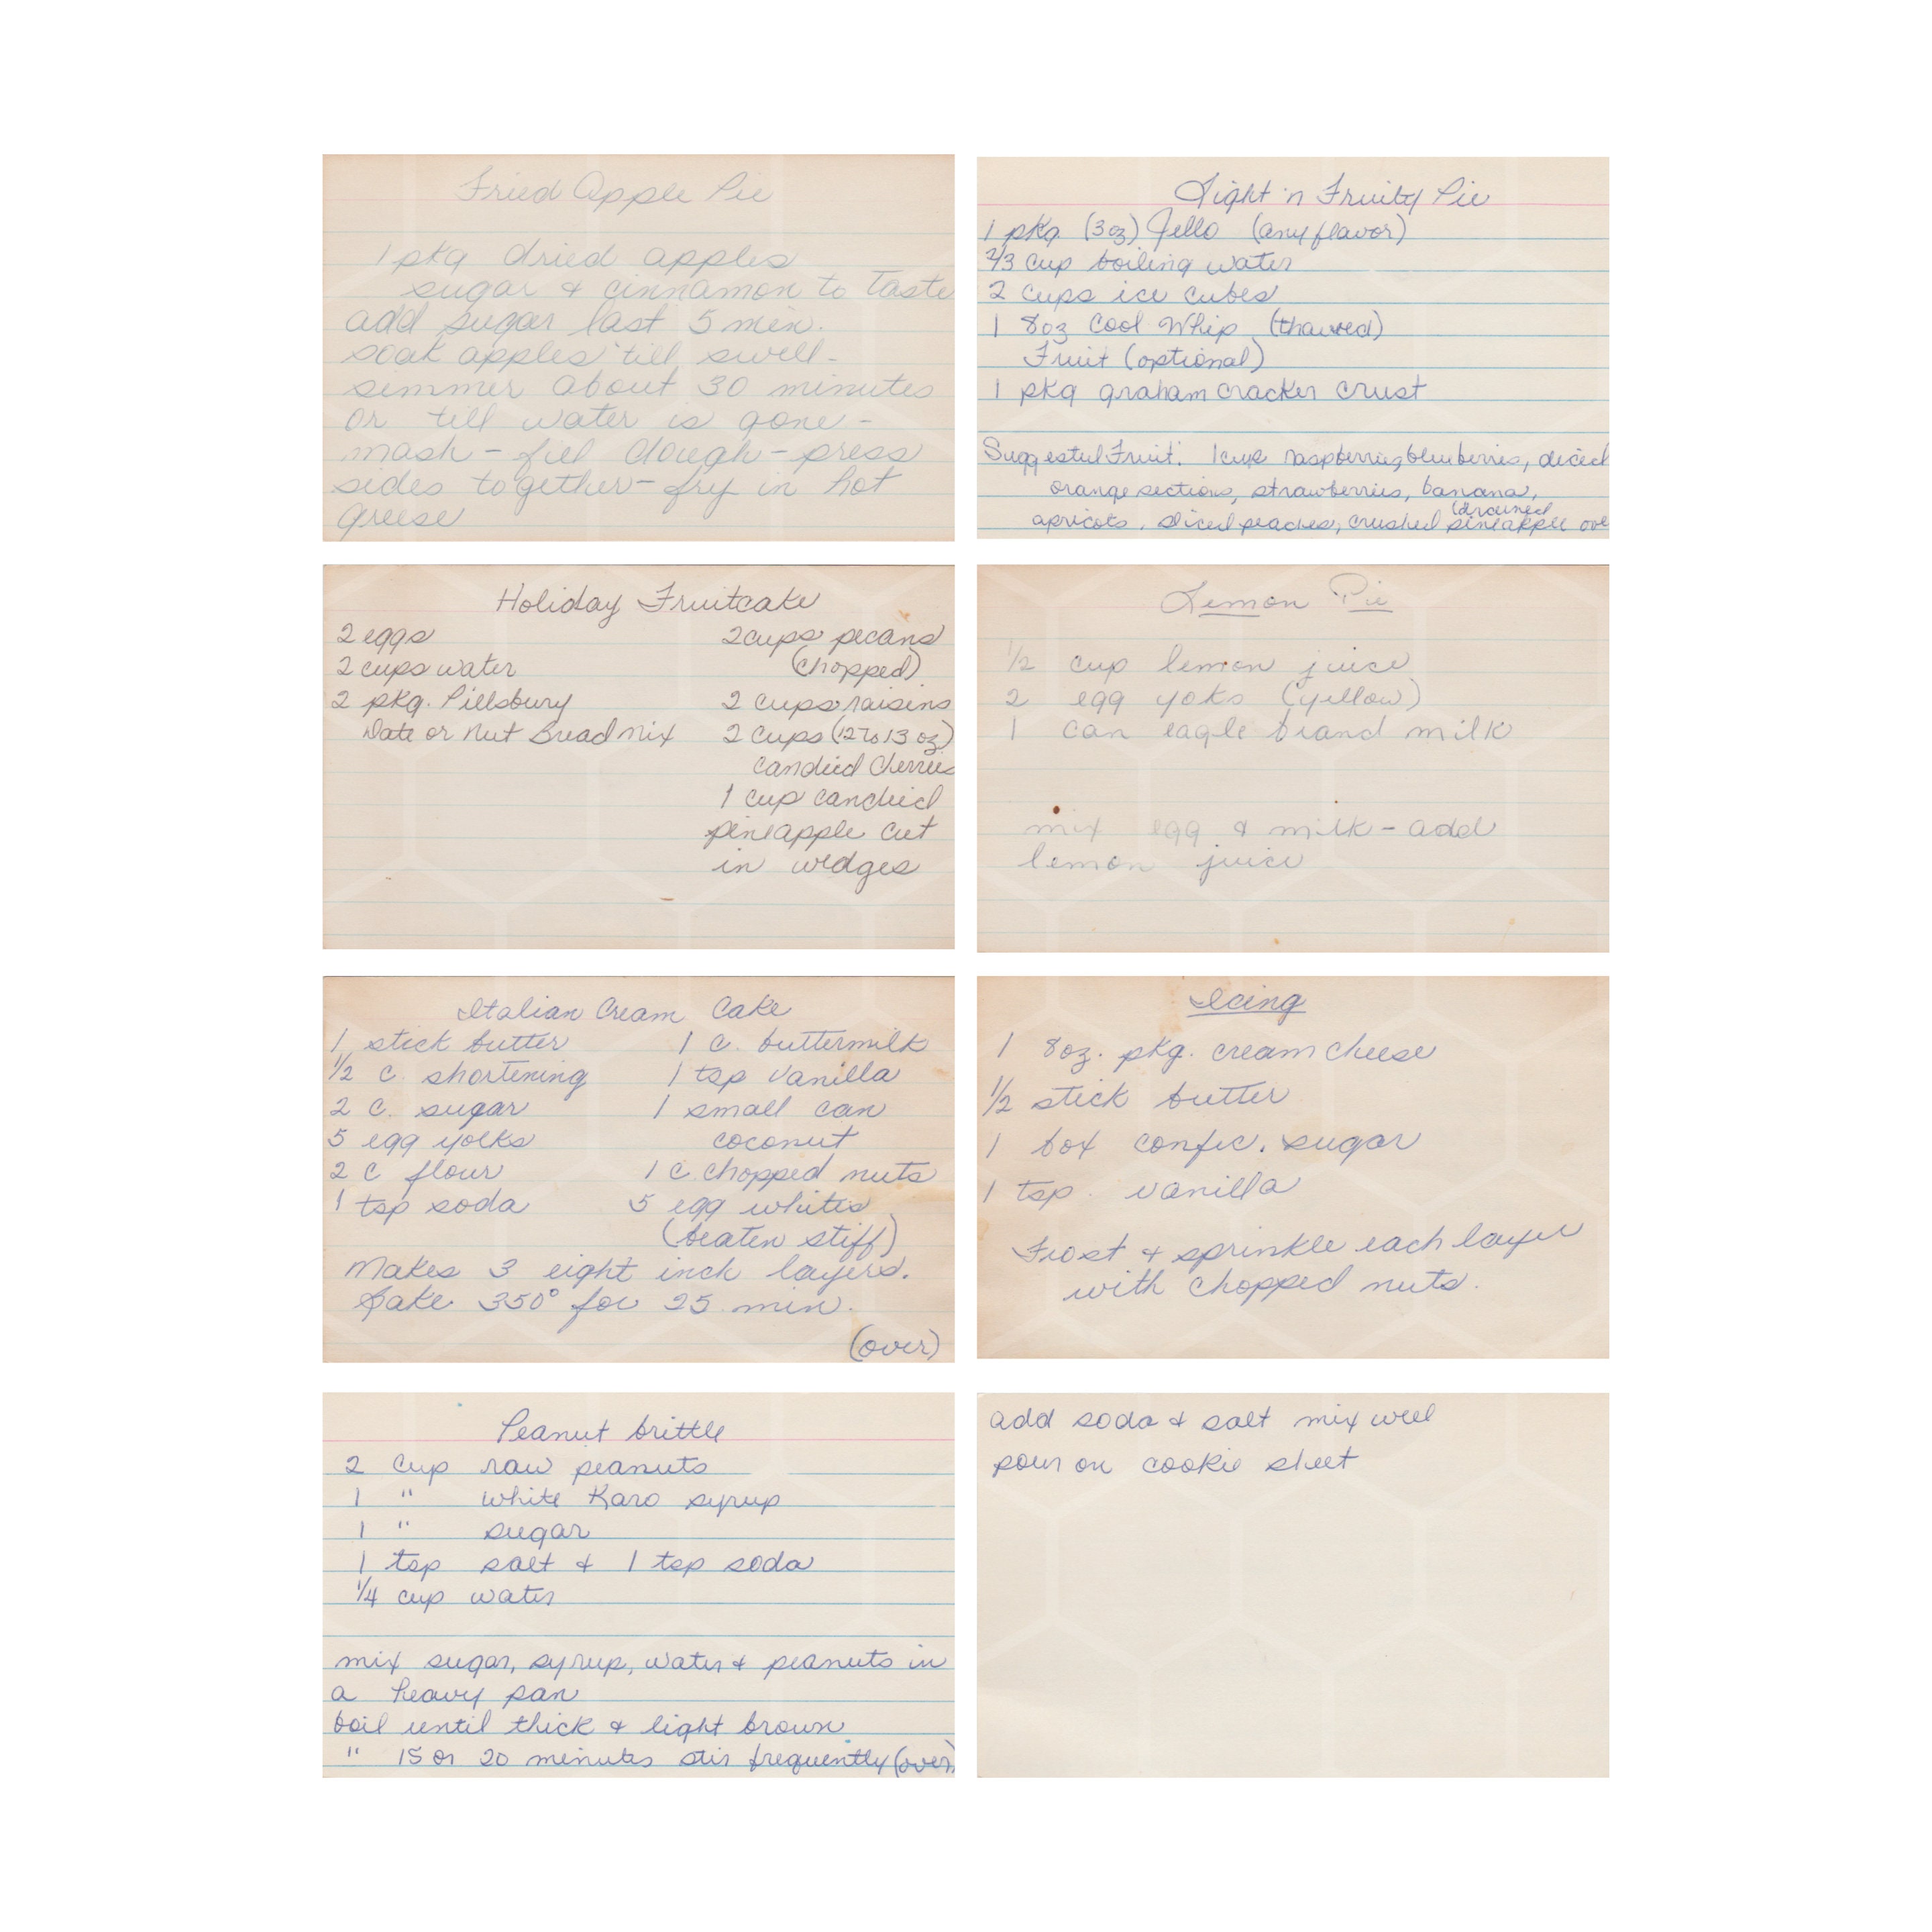 Fried Apple Pie
1 pkg dried apples
sugar & cinnamon to taste
add sugar last 5 min.
soak apples 'till swell-
simmer about 30 minutes
or till water is gone-
mash - fill dough - press
sides together - fry in hot
greese
Light 'n Fruity Pie
1 pkg (3oz) Jello (any flavor)
2/3 cup boiling water
2 cups ice cubes
1 8oz Cool Whip (thawed)
Fruit (optional)
1 pkg graham cracker crust
Suggested Fruit: 1 cup raspberries, blueberries, diced
orange sections, strawberries, banana,
(drained
apricots, sliced peaches, crushed pineapple ove
Holiday Fruitcake
2 eggs
2 cups water
2 pkg. Pillsbury
Date or Nut Bread Mix
2 cups pecans
(chopped)
2 cups raisins
2 cups (12 to 13 oz)
candied cherries
1 cup candied
pineapple cut
in wedges
Lemon Pie
1/2 cup lemon juice
2 egg yoks (yellow)
1 can eagle brand milk
mix egg & milk - add
lemon juice
Italian Cream Cake
1 stick butter
1/2 c. shortening
2 c. sugar
5 egg yolks
2 c flour
1 tsp soda
1 c. buttermilk
1 tsp vanilla
1 small can
coconut
1 c chopped nuts
5 egg whites
(beaten stiff)
Makes 3 eight inch layers.
Bake 350° for 25 min.
(over)
Icing
1 8oz. pkg. cream cheese
1/2 stick butter
1 box confec. sugar
1 tsp. vanilla
Frost & sprinkle each layer
with chopped nuts.
Peanut brittle
2 cup raw peanuts
1 " white Karo syrup
1 " sugar
1 tsp salt & 1 tsp soda
1/4 cup water
mix sugar, syrup, water & peanuts in
a heavy pan
boil until thick & light brown
" 15 or 20 minutes stir frequently (over)
add soda & salt mix well
pour on cookie sheet